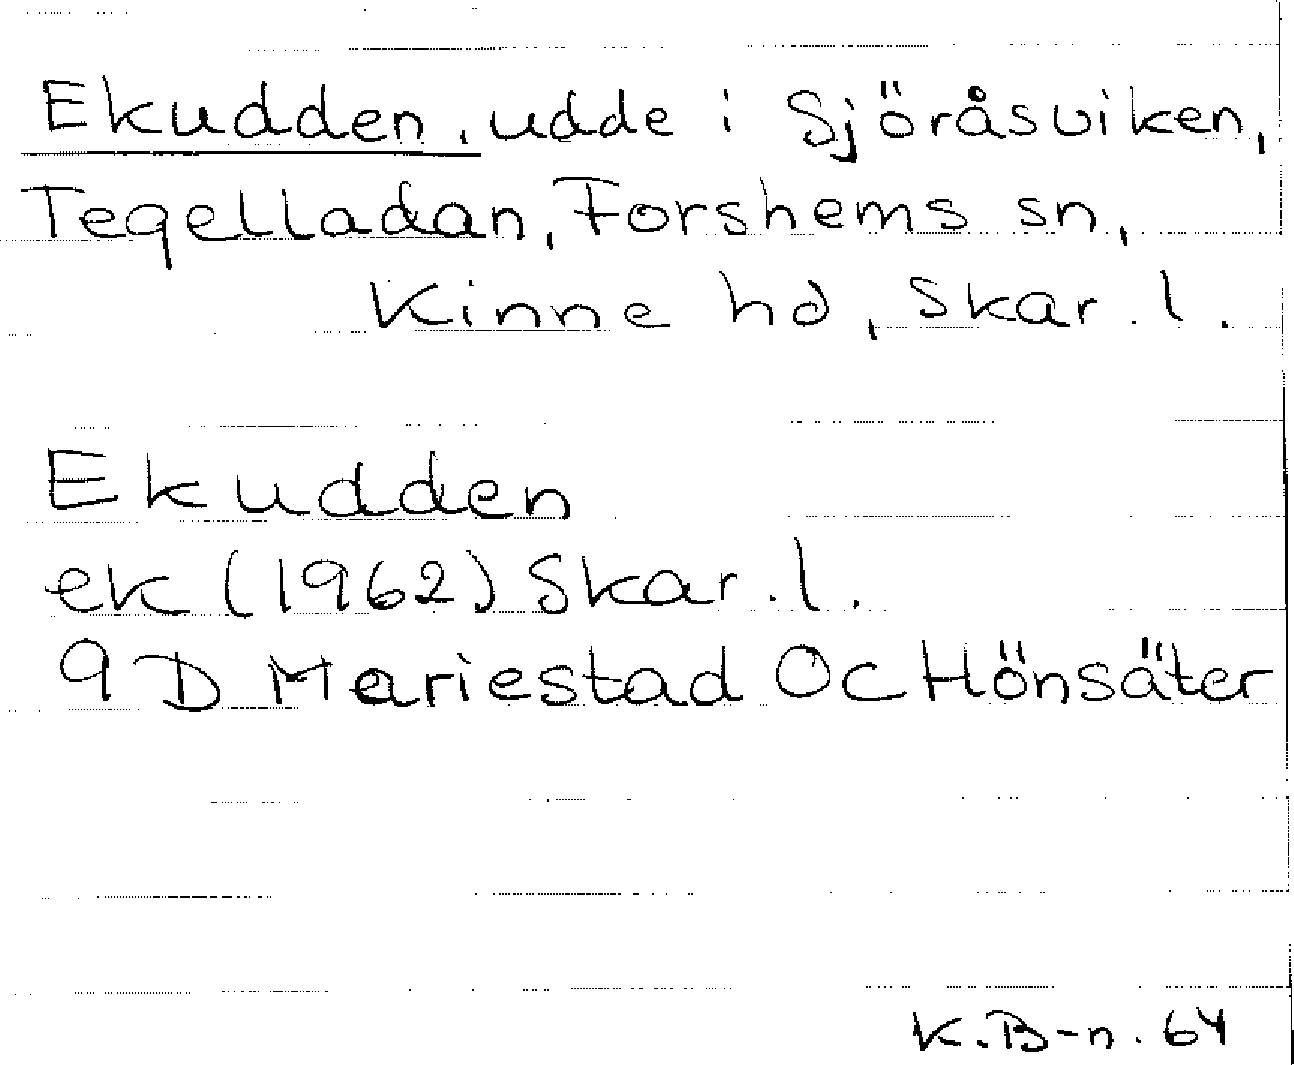 Ekudden, udde i Sjöråsviken,
Tegelladan, Forshems sn,
Kinne hd, Skar. l.
Ekudden
ek (1962) Skar. l.
9 D Mariestad Oc Hönsäter
K.B-n. 64